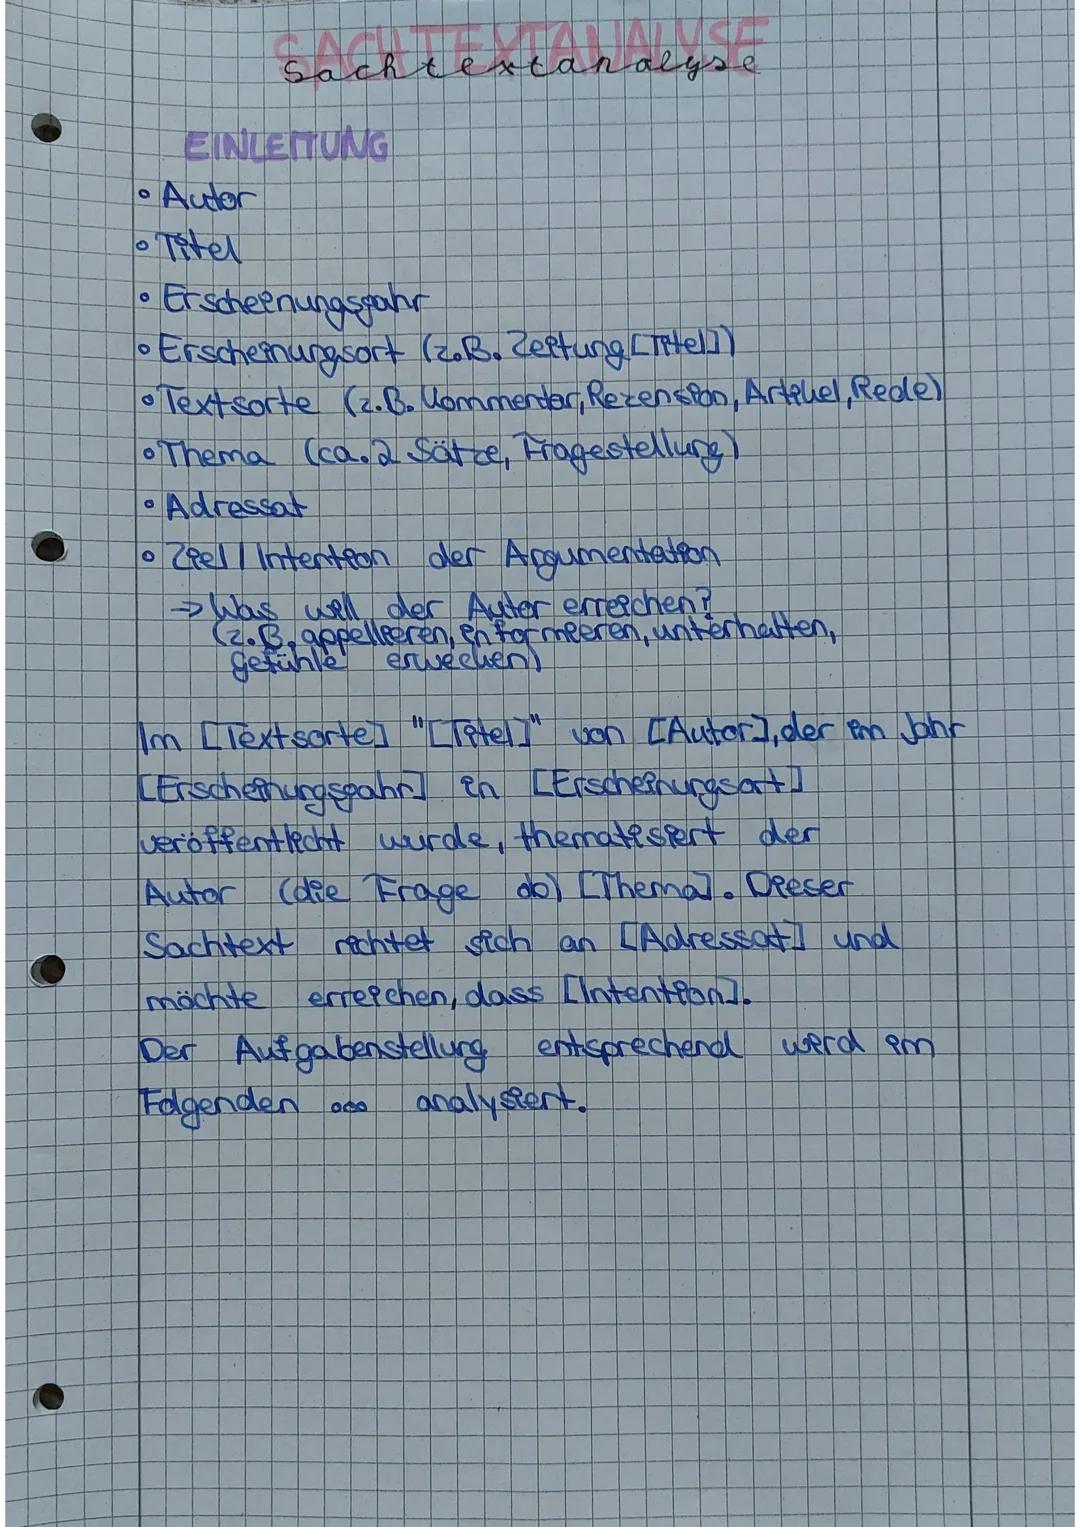 SACHTEXTANALYSE
Sachtextanalyse
EINLEITUNG
• Autor
• Titel
• Erscheinungsjahr
• Erscheinungsort (z.B. Zeitung [Titel])
• Textsorte (z.B. Kommentar, Rezension, Artikel, Rede)
• Thema (ca. 2 Sätze, Fragestellung)
• Adressat
• Ziel / Intention der Argumentation
→ Was will der Autor erreichen?
(z.B. appellieren, informieren, unterhalten,
gefühle erwecken)
Im [Textsorte] "[Titel]" von [Autor], der im Jahr
[Erscheinungsjahr] in [Erscheinungsort]
veröffentlicht wurde, thematisiert der
Autor (die Frage ob) [Thema]. Dieser
Sachtext richtet sich an [Adressat] und
möchte erreichen, dass [Intention].
Der Aufgabenstellung entsprechend wird im
Folgenden ... analysiert.